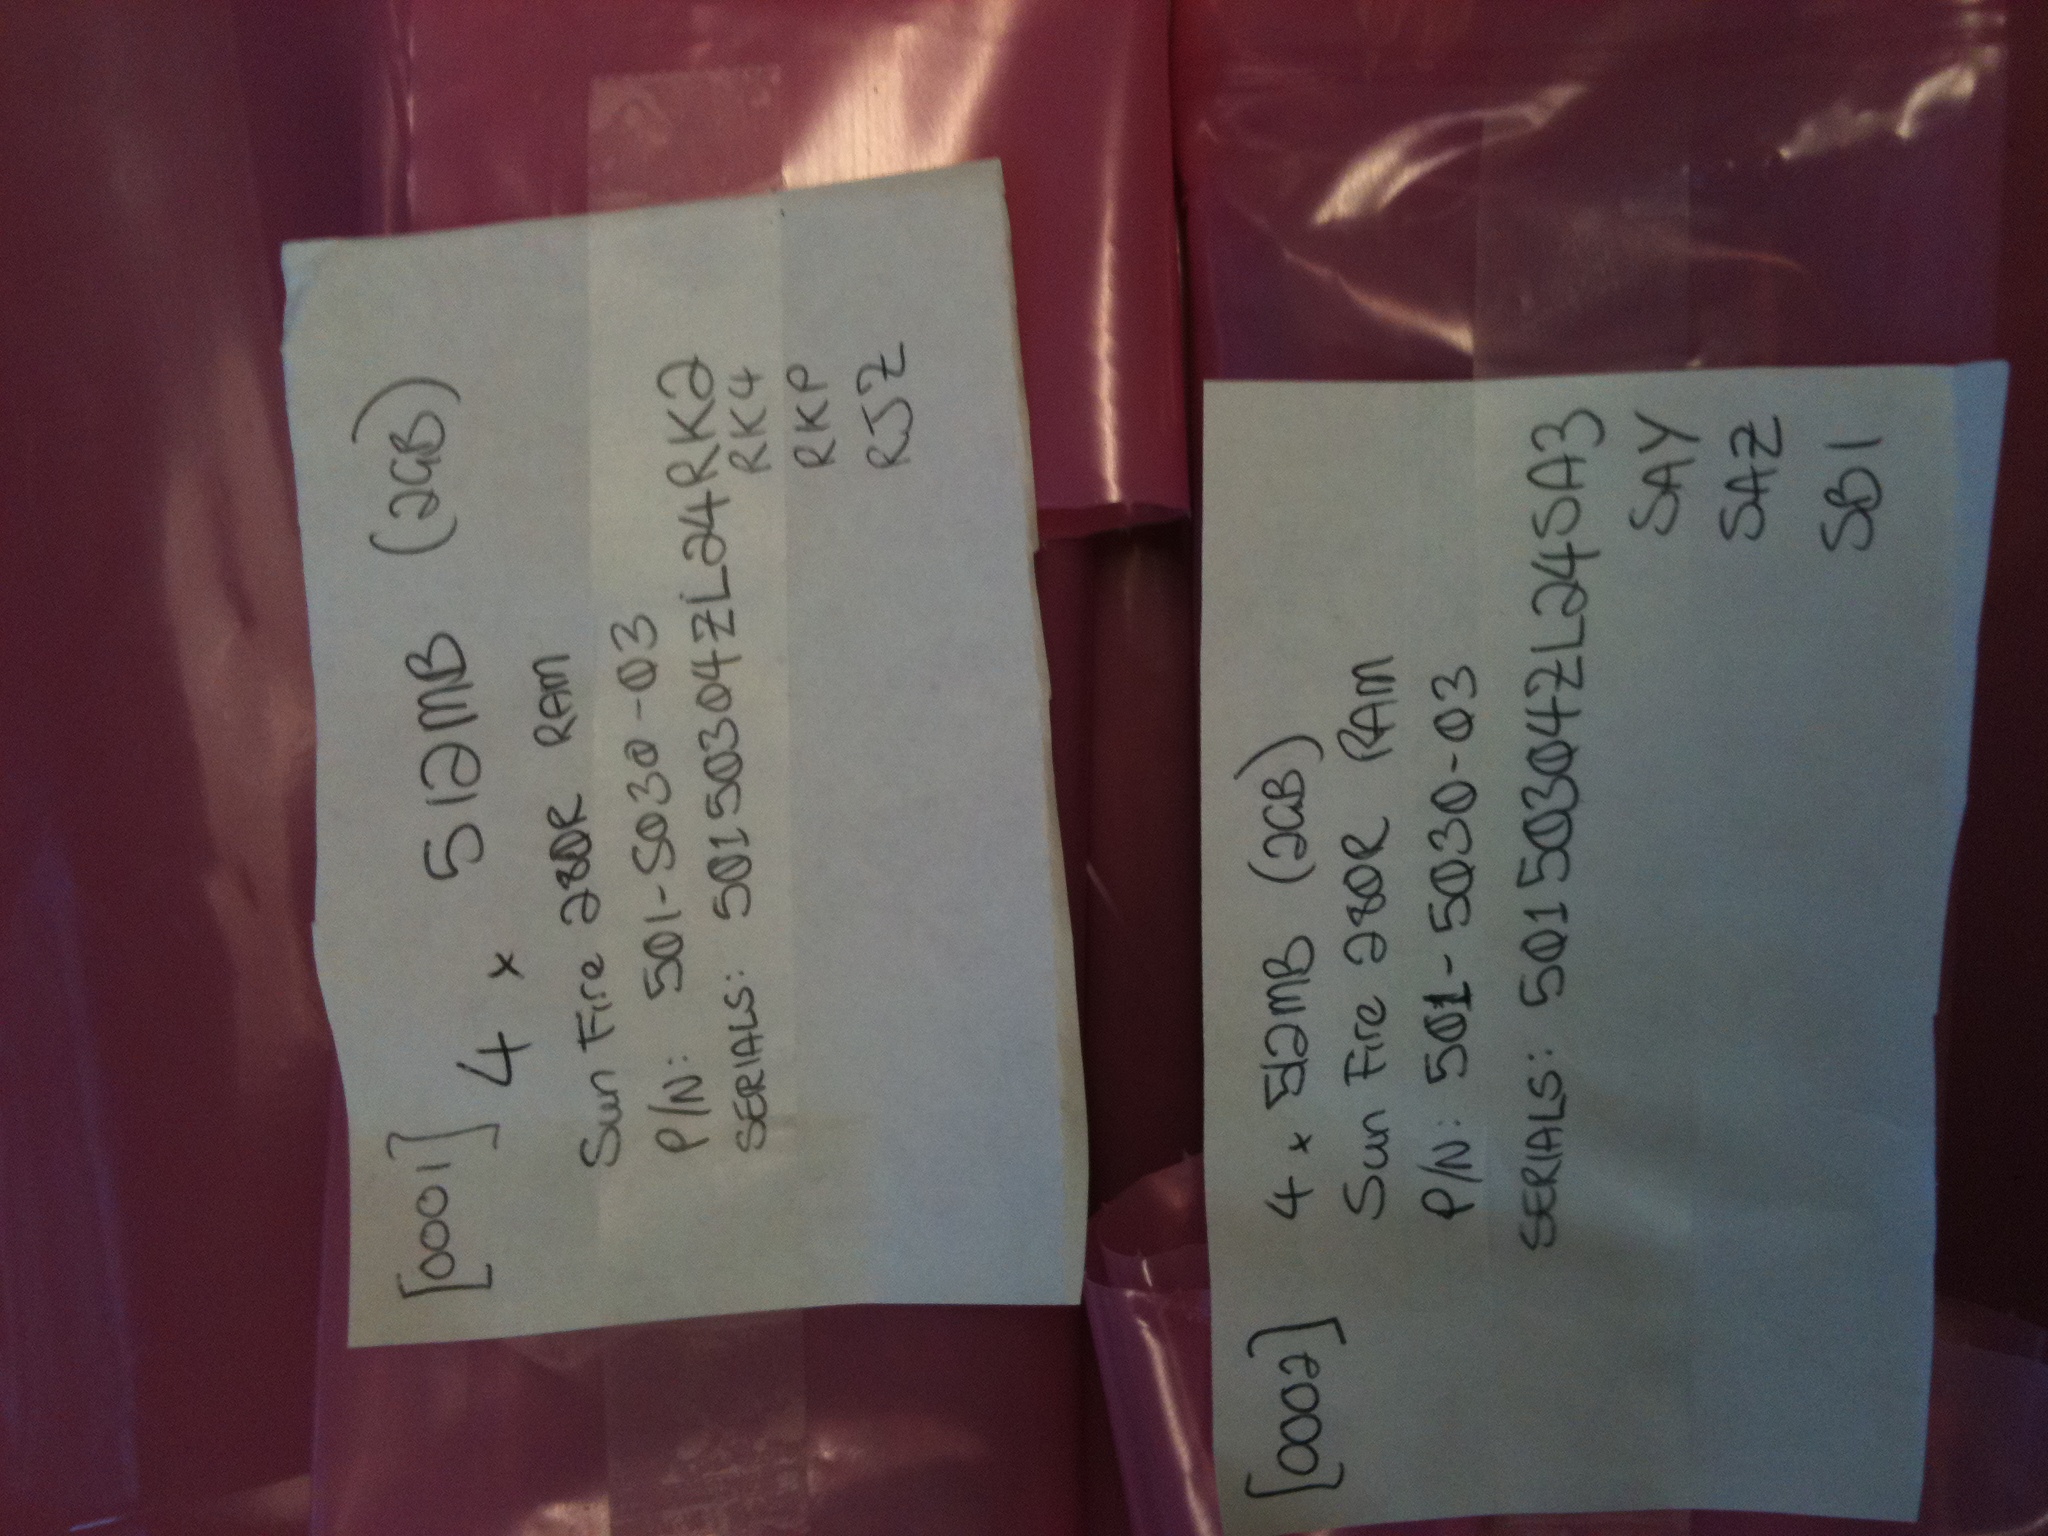 [0001] 4 x 512MB (2GB)
Sun Fire 280R RAM
P/N: 501-5030-03
SERIALS: 50150304ZL24RK2
RK4
RKP
RJZ
[0002] 4 x 512MB (2GB)
Sun Fire 280R RAM
P/N: 501-5030-03
SERIALS: 50150304ZL24SA3
SAY
SAZ
SB1